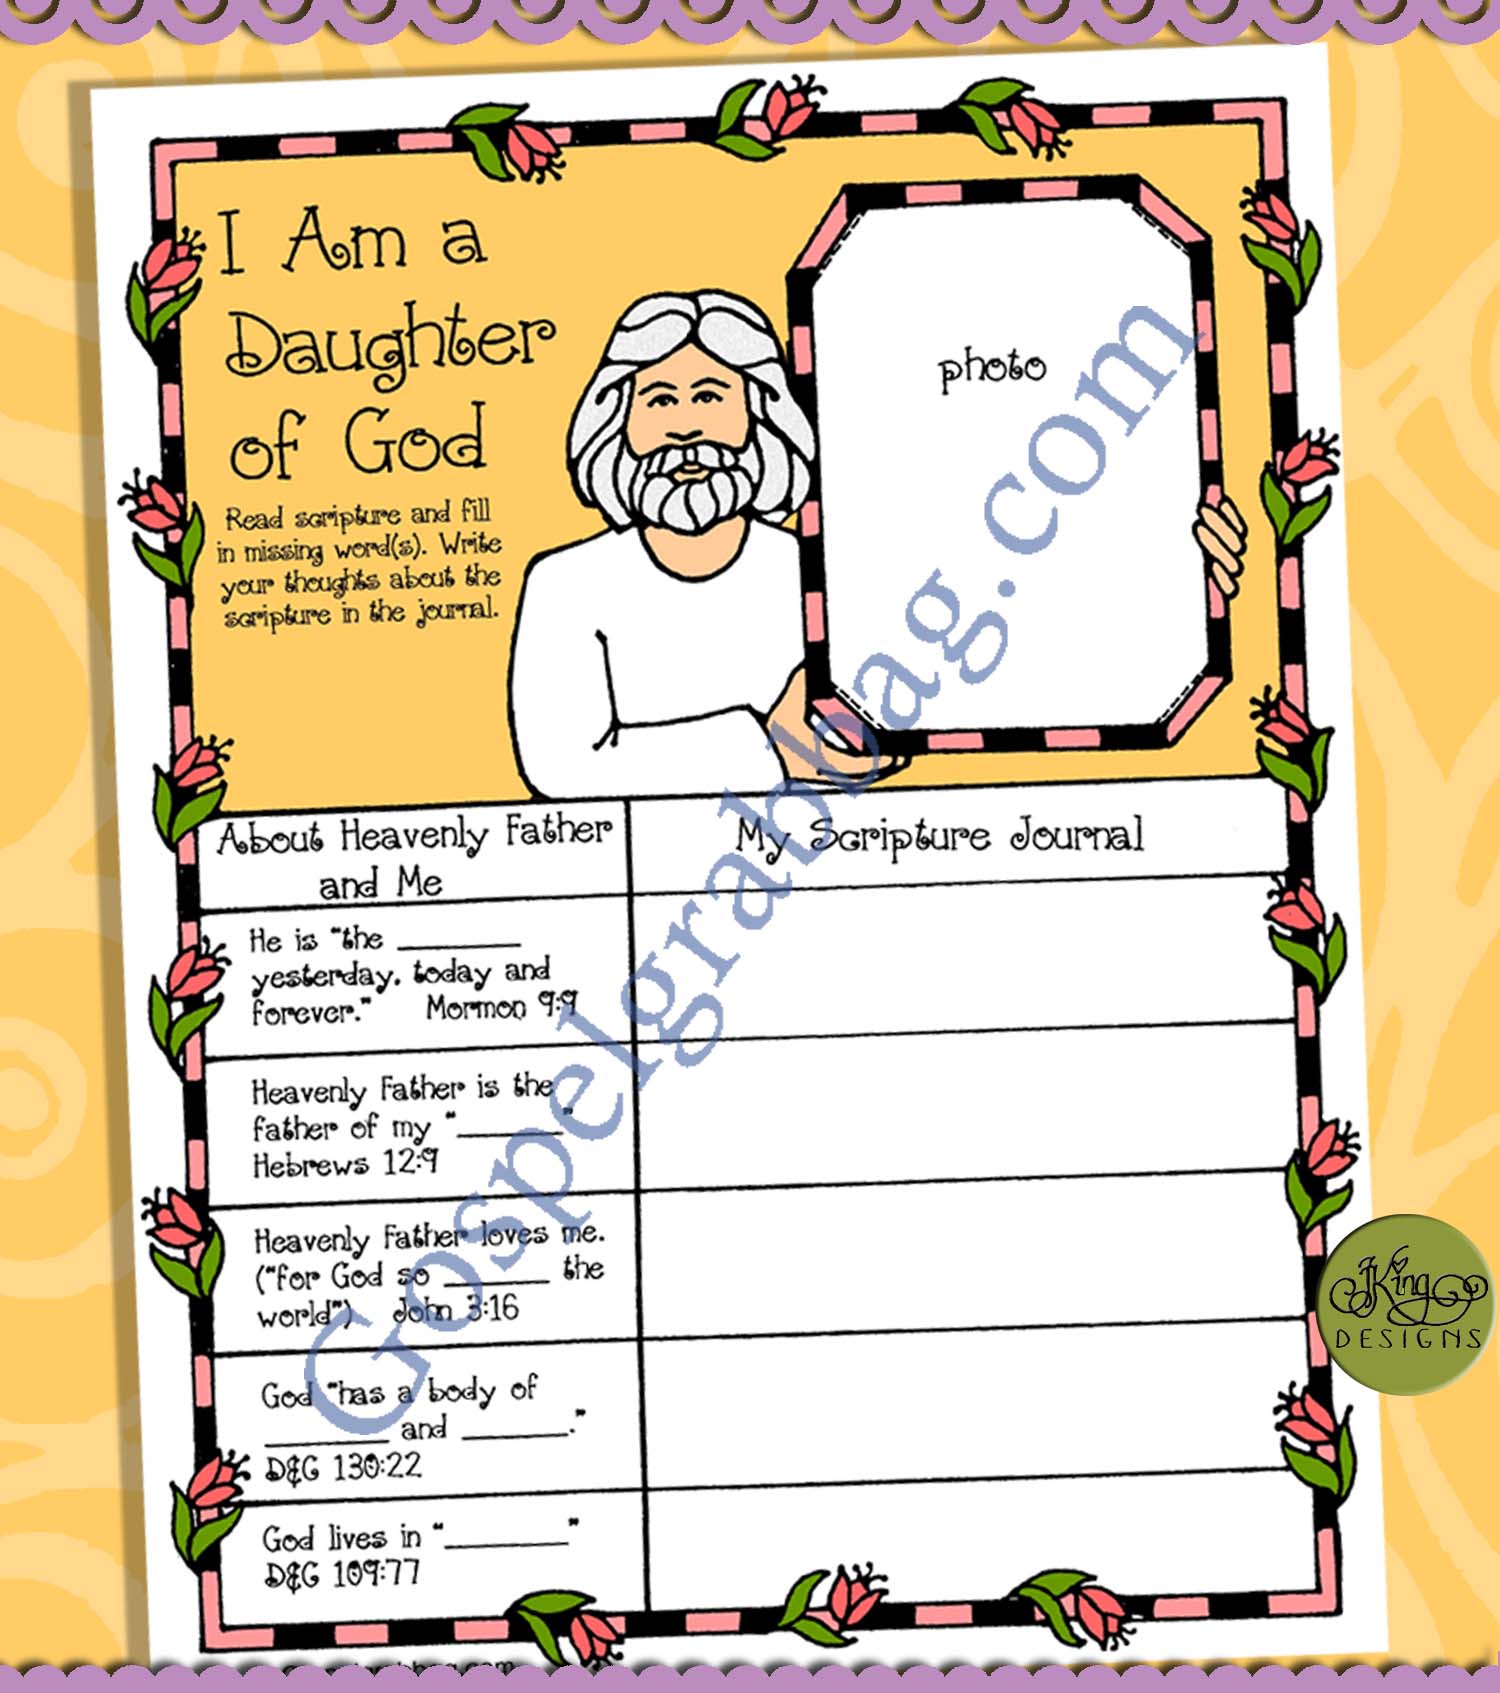 I Am a
Daughter
of God
Read scripture and fill
in missing word(s). Write
your thoughts about the
scripture in the journal.
photo
About Heavenly Father
and Me
My Scripture Journal
He is "the ________
yesterday, today and
forever."   Mormon 9:9
Heavenly Father is the
father of my "_______"
Hebrews 12:9
Heavenly Father loves me.
("for God so _______ the
world")   John 3:16
God "has a body of
________ and _______."
D&C 130:22
God lives in "________"
D&C 109:77
Gospelgrabbag.com
JKing
DESIGNS